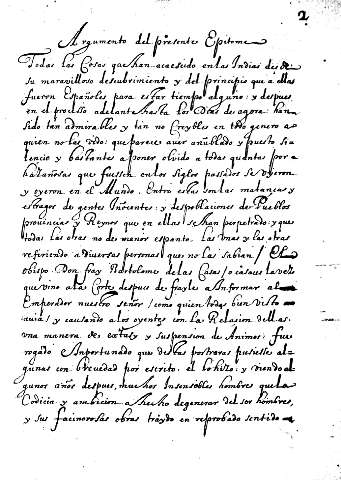 2
Argumento del presente Epitome
Todas las Cosas que han acaesido en las Indias desde
su maravilloso descubrimiento y del principio que a ellas
fueron Españoles para estar tiempo alguno: y despues
en el processo adelante hasta los Dias de agora: han
sido tan admirables y tan no Creybles en todo genero a
quien no las vido: que parece aver añublado y puesto si=
lencio y bastantes a poner olvido a todas quantas por
hazañosas que fuessen en los siglos passados se vyeron
y oyeron en el Mundo. Entre estas son las matanças y
estragos de gente Inocentes: y despoblaciones de Pueblos
provincias y Reynos que en ellas se han perpetrado: y que
todas las otras no de menor espanto. Las unas y las otras
refiriendo a diversas personas que no las sabian / El
obispo. Don fray Bartolome de las Casas / o casaus la vez
que vino a la Corte despues de frayle a Informar al
Emperador nuestro señor / como quien todas bien visto
avia / y causando a los oyentes con la Relasion dellas.
una manera de extasy y suspension de Animos: fue
rogado Inportunado que destas postreras pusiesse al=
gunas con brevedad por escrito. el lo hizo: y viendo al
gunos años despues, muchos Insensibles hombres que la
Codicia y ambicion a hecho degenerar del ser hombres,
y sus facinorosas obras traydo en reprobado sentido